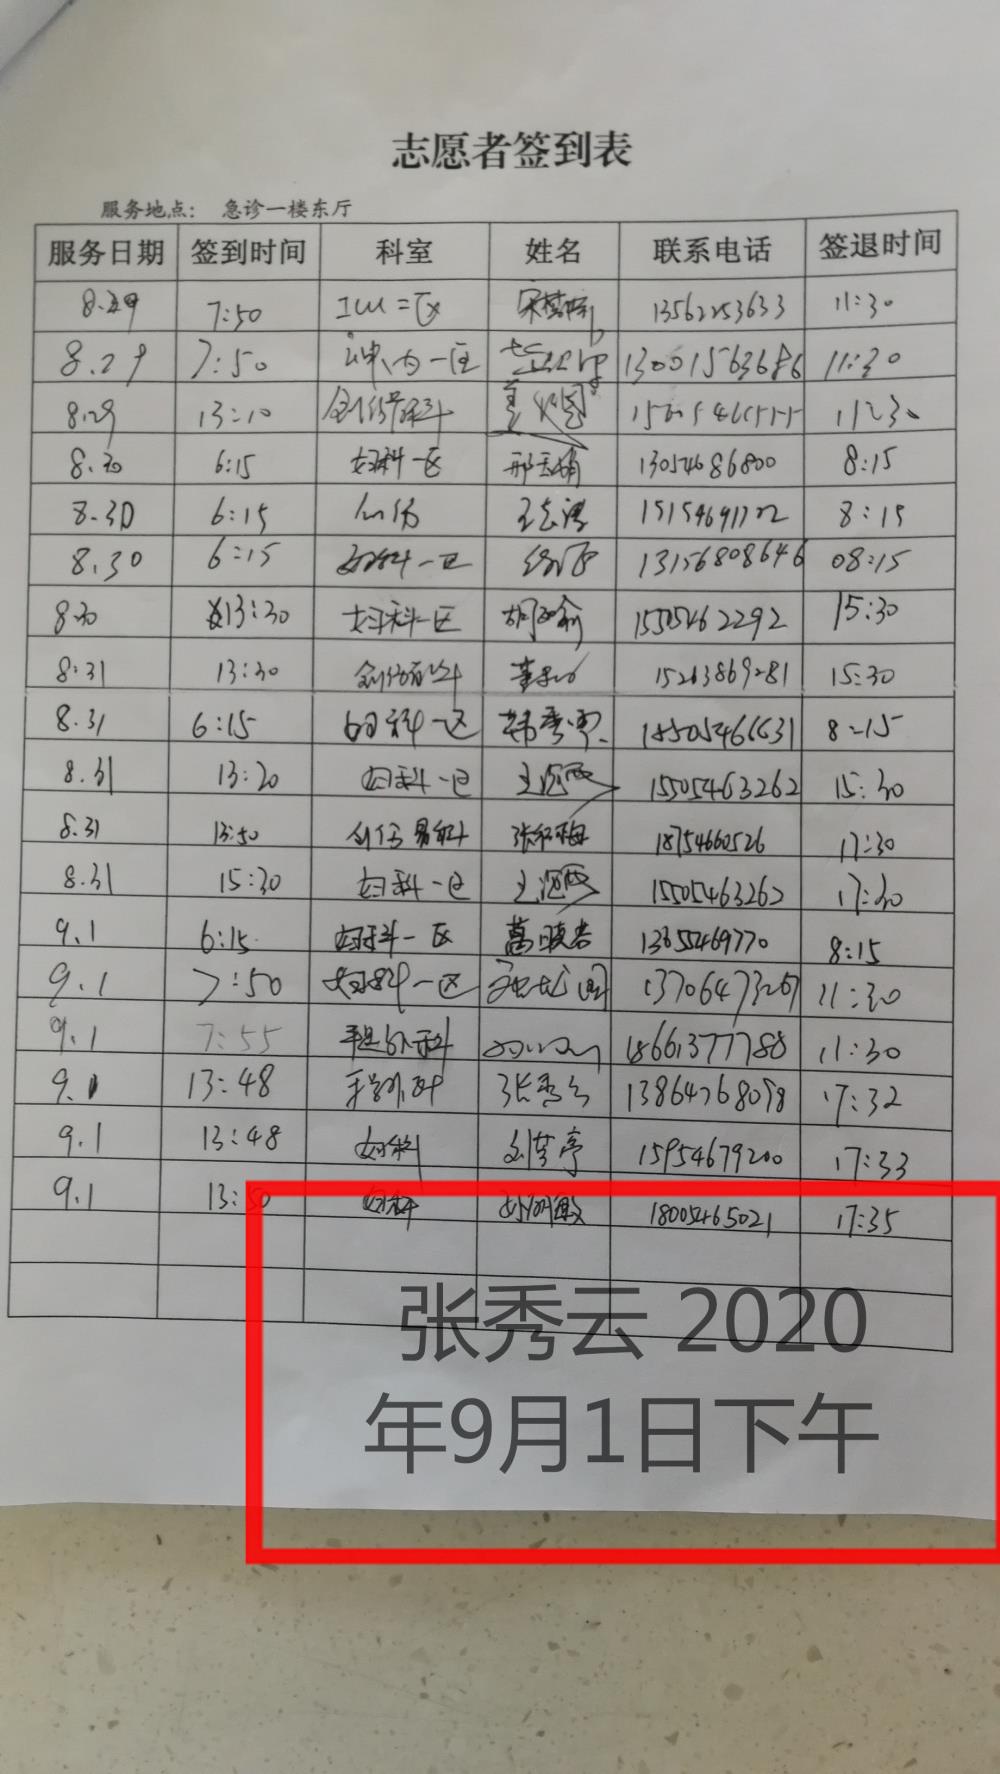 志愿者签到表
服务地点： 急诊一楼东厅
服务日期 签到时间 科室 姓名 联系电话 签退时间
7:50 ICU二区 13562253633 11:30
8.29 7:50 神内一区 13001563686 11:30
8.29 13:10 创伤骨科
8.30 6:15 妇科一区 邢玉娟 13054686800 8:15
8.30 6:15 王志涛 8:15
8.30 6:15 妇科一区 13156808646 08:15
8.30 13:30 妇科一区 15505462292 15:30
8.31 13:30 创伤骨科 15263869281 15:30
8.31 6:15 妇科一区 韩秀云 8:15
8.31 13:20 妇科一区 15505463262 15:30
8.31 13:50 张红梅 18754660526 17:30
8.31 15:30 妇科一区 15505463262 17:30
9.1 6:15 妇科一区 葛晓君 13655469770 8:15
9.1 7:50 妇科一区 11:30
9.1 7:55 手足外科 18661377788 11:30
9.1 13:48 手足外科 张秀云 13864768098 17:32
9.1 13:48 妇科 刘梦亭 15954679200 17:33
9.1 13:50 妇科 18005465021 17:35
张秀云 2020
年9月1日下午